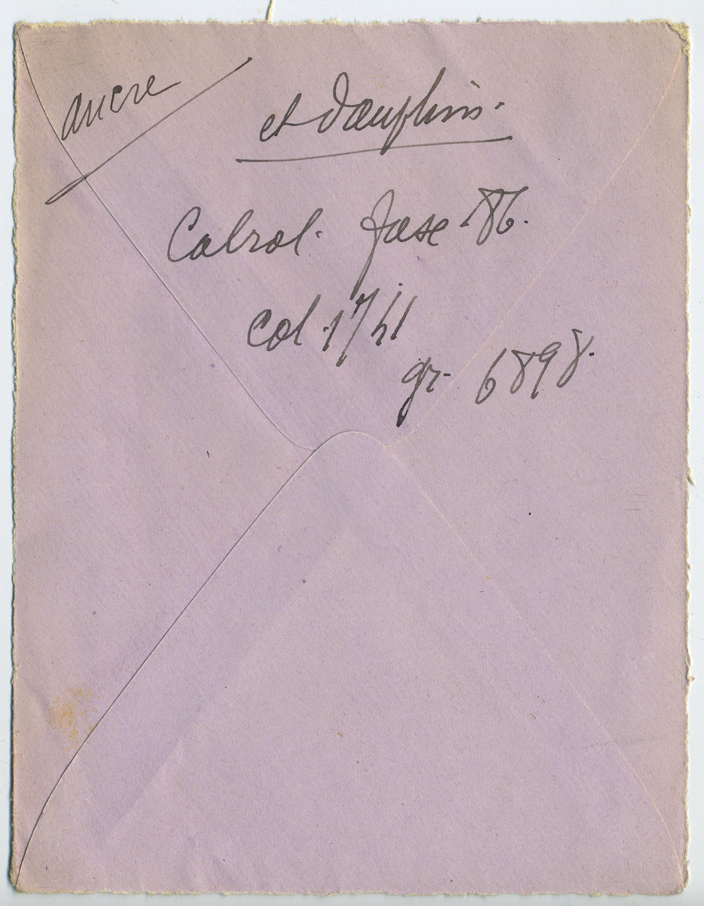 ancre
et dauphins.
Cabrol. fasc 86.
col. 1741
gr. 6898.